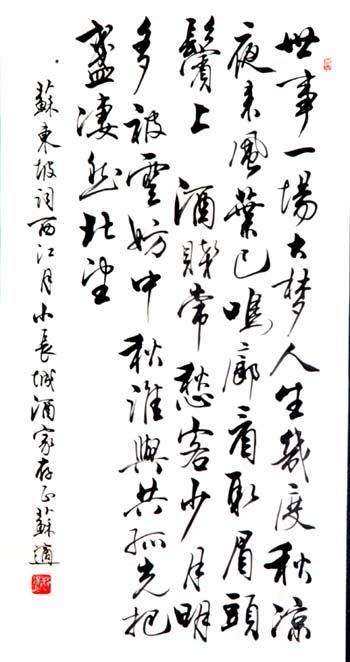 世事一場大梦人生幾度秋凉
夜来風葉已鳴廊看取眉頭
鬢上酒賤常愁客少月明
多被雲妨中秋誰與共孤光把
盞凄然北望
蘇東坡詞西江月小長城酒家存正蘇適